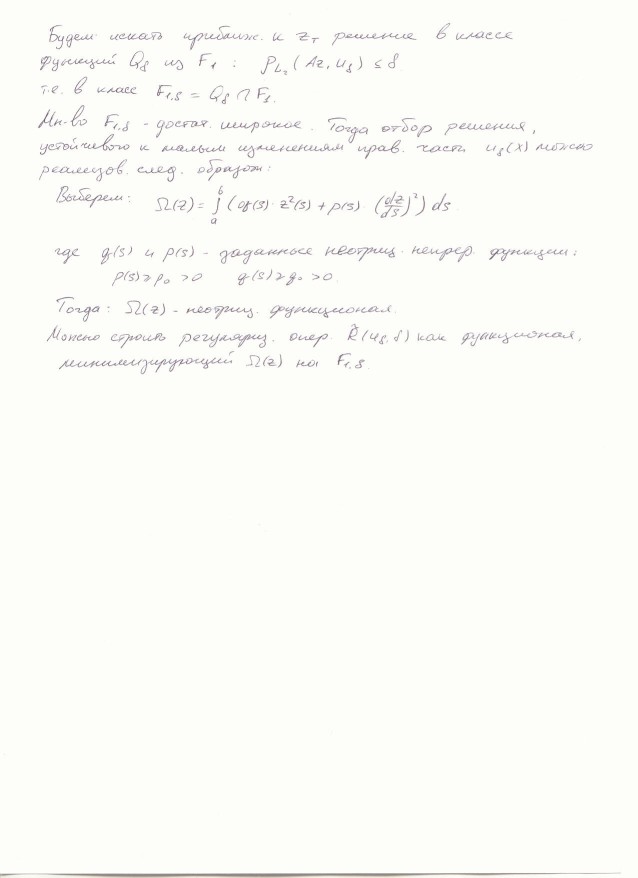 Будем искать приближ. к z_T решение в классе
функций Q_δ из F_1 : ρ_{L_2}(Az, u_δ) ≤ δ
т.е. в класс F_{1,δ} = Q_δ ∩ F_1.
Мн-во F_{1,δ} - достат. широкое. Тогда отбор решения,
устойчивого к малым изменениям прав. части u_δ(x) можно
реализов. след. образом:
Выберем: Ω(z) = ∫_a^b (q(s)·z²(s) + p(s)·(dz/ds)²) ds
где q(s) и p(s) - заданные неотриц. непрер. функции:
p(s) ≥ p_0 > 0 q(s) ≥ q_0 > 0.
Тогда: Ω(z) - неотриц. функционал.
Можно строить регуляриз. опер. R̃(u_δ, δ) как функционал,
минимизирующий Ω(z) на F_{1,δ}.